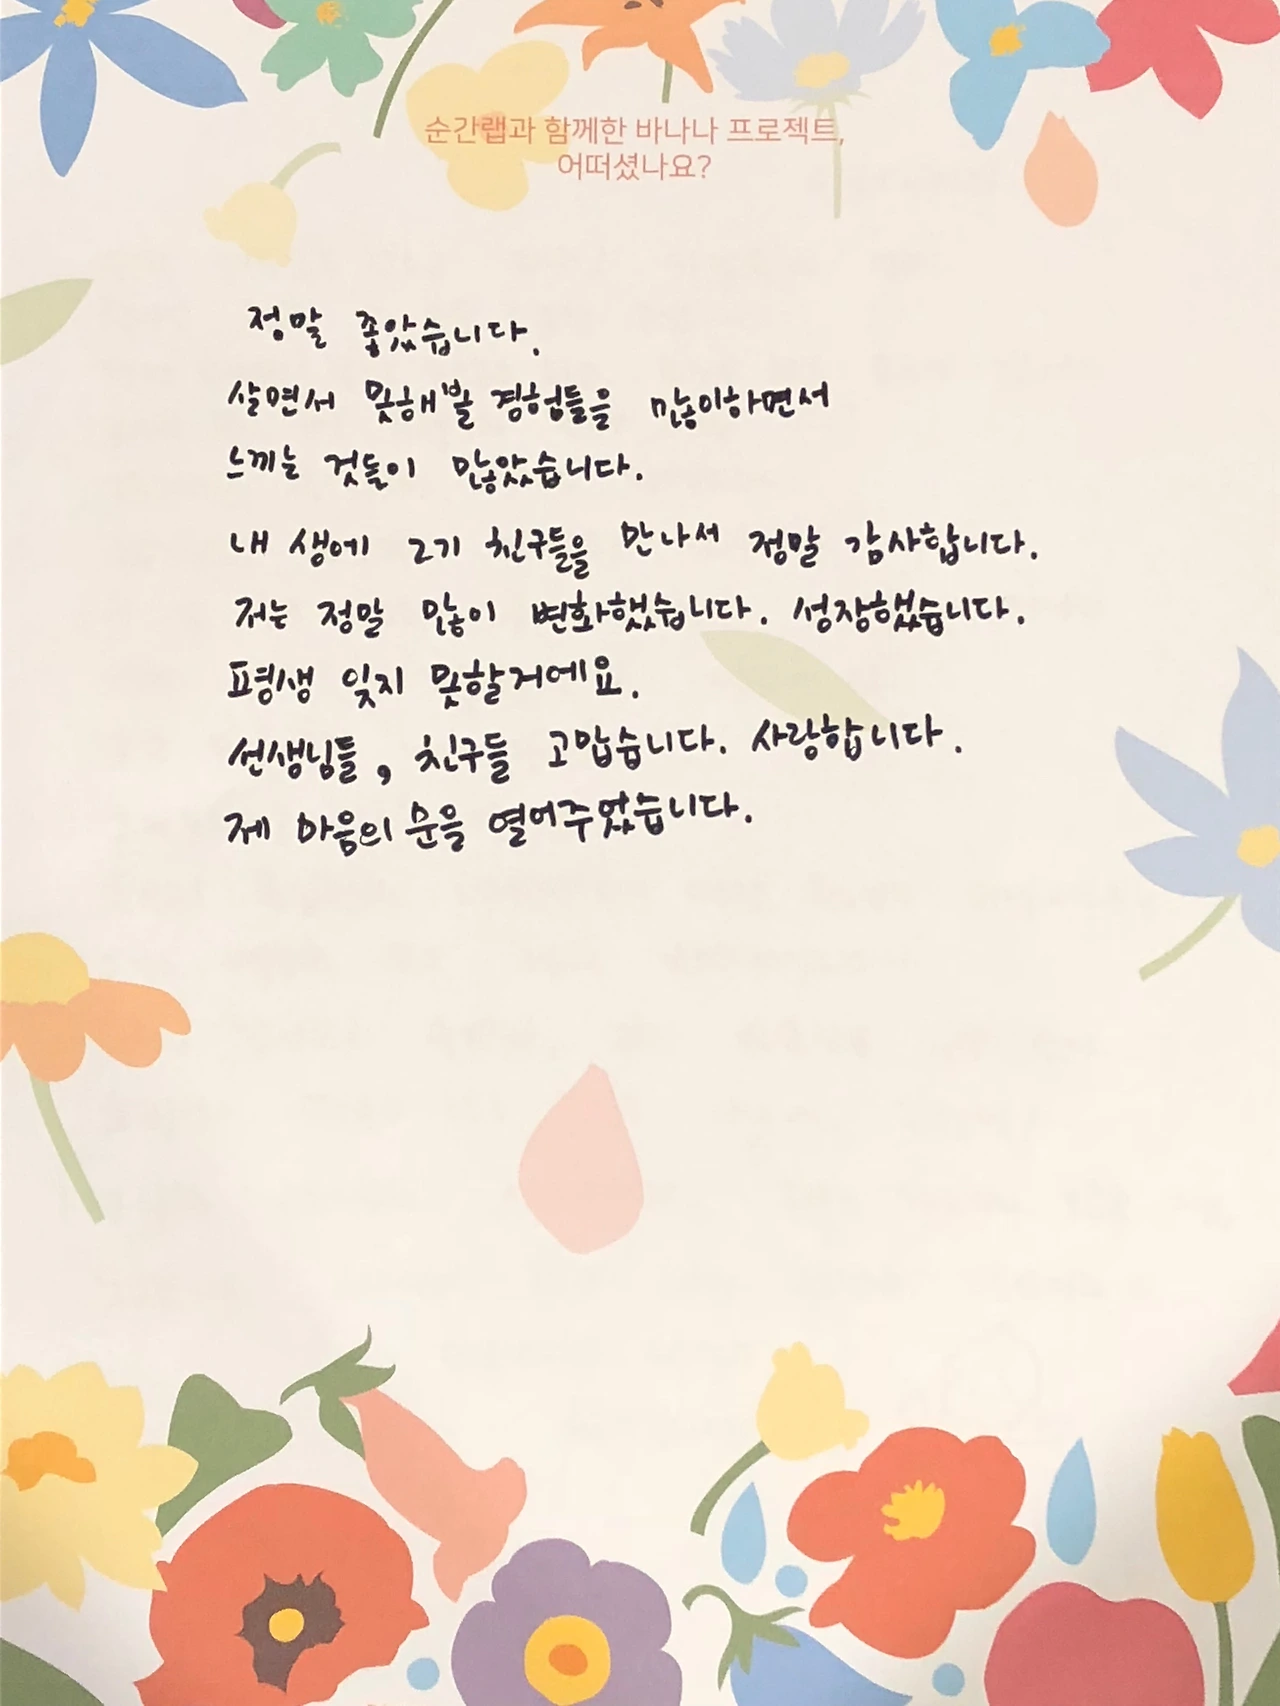 순간랩과 함께한 바나나 프로젝트,
어떠셨나요?
정말 좋았습니다.
살면서 못해볼 경험들을 많이하면서
느끼는 것들이 많았습니다.
내 생에 2기 친구들을 만나서 정말 감사합니다.
저는 정말 많이 변화했습니다. 성장했습니다.
평생 잊지 못할거에요.
선생님들, 친구들 고맙습니다. 사랑합니다.
제 마음의 문을 열어주었습니다.